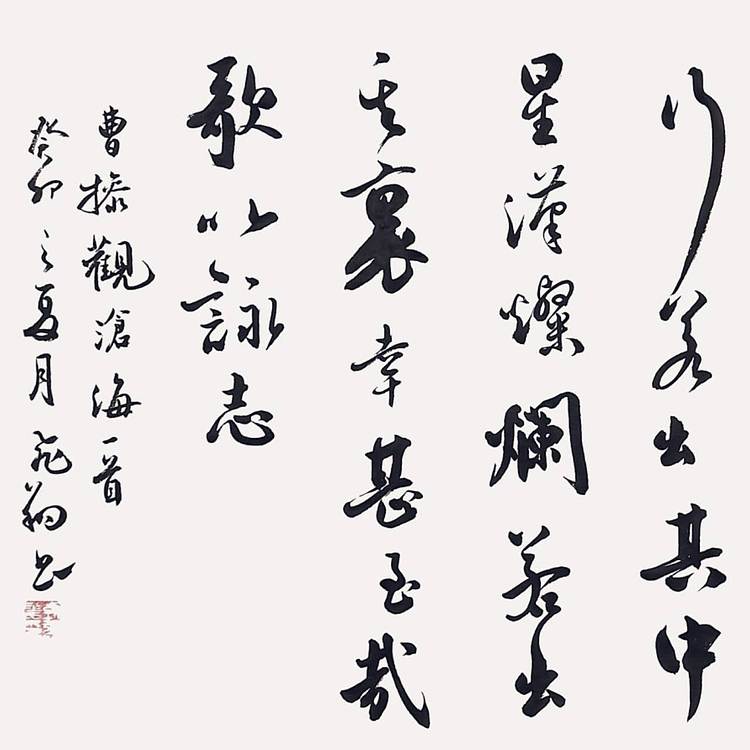 行若出其中
星漢燦爛若出
其裏幸甚至哉
歌以詠志
曹操觀滄海一首
癸卯之夏月飛翔書